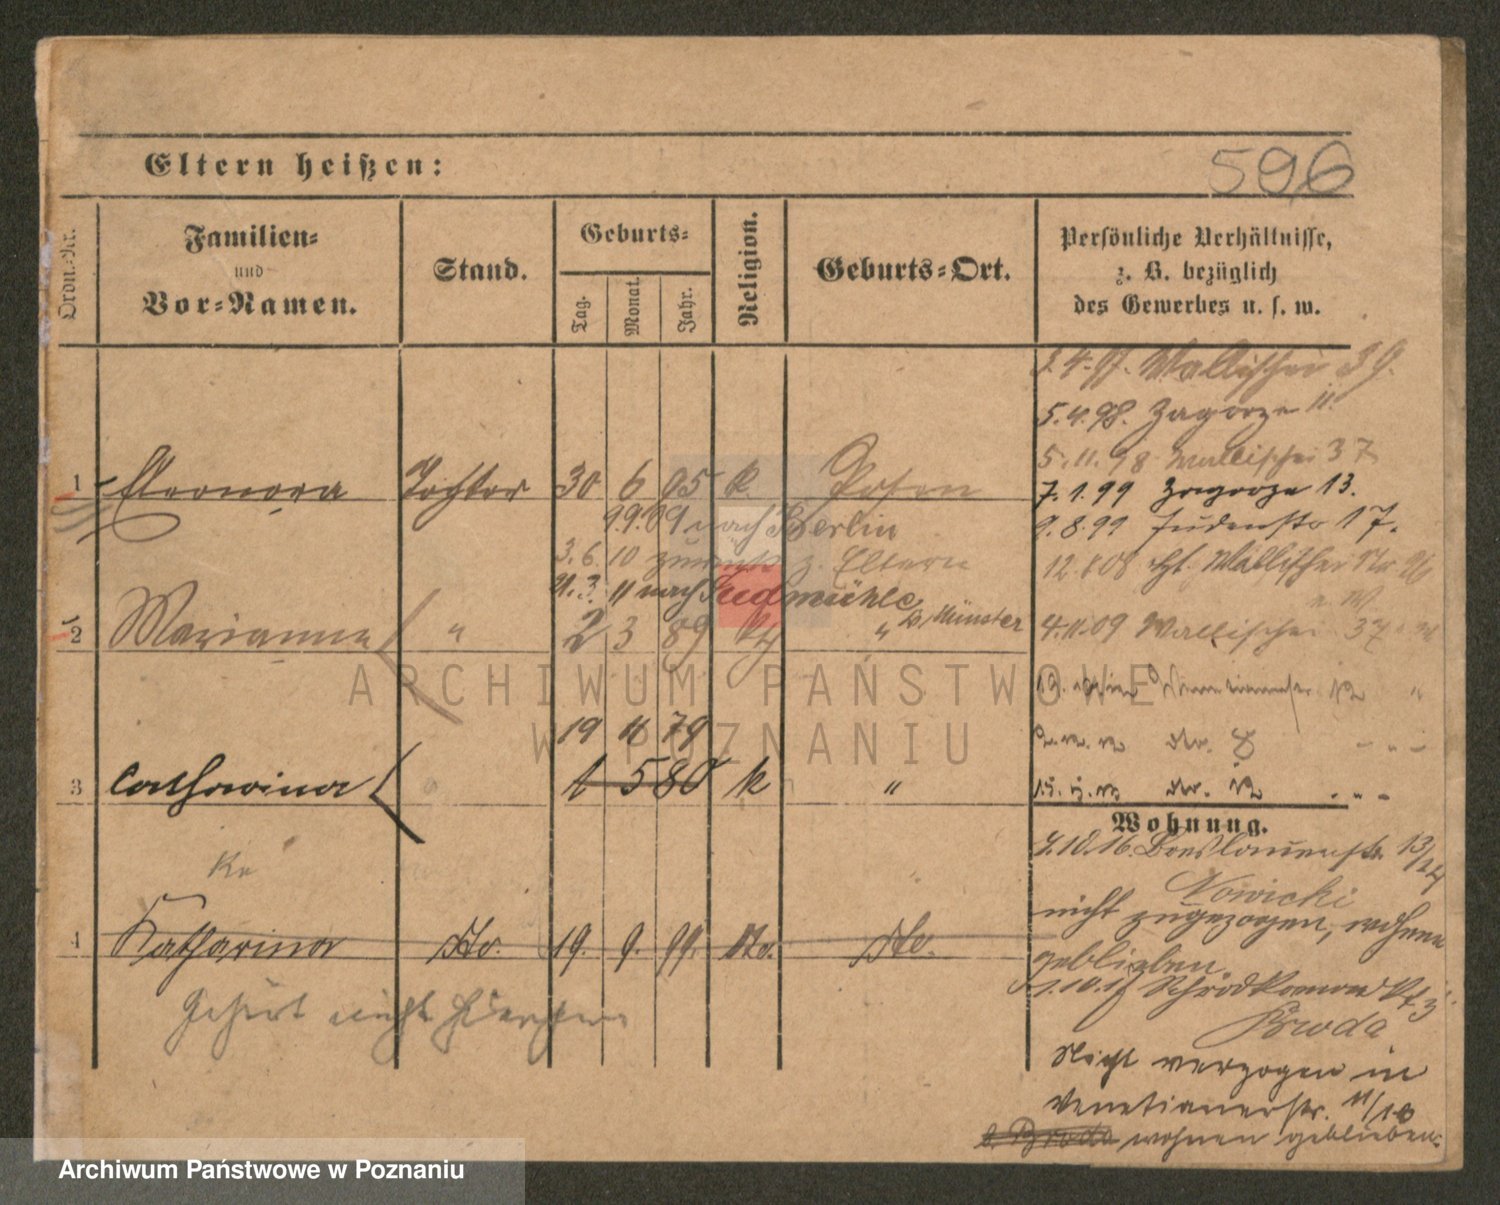 Eltern heißen:
596
Ordn.-Nr.
Familien-
und
Vor-Namen.
Stand.
Geburts-
Tag.
Monat.
Jahr.
Religion.
Geburts-Ort.
Persönliche Verhältnisse,
z. B. bezüglich
des Gewerbes u. s. w.
3.4.97. Wallischei 39.
5.4.98. Zagorze 11.
5.11.98 Wallischei 37
1 Eleonora Tochter 30 6 95 k. Posen
7.1.99 Zagorze 13.
9.9.09 nach Berlin
9.8.99 Judenstr 17.
3.6.10 zurück z. Eltern
12.8.08 Wallischei Nr
11.3.11 nach Sudmühle
b/Münster
2 Marianna " 2 3 89 "
4.11.09 Wallischei 37
19 11 79
3 Catharina 1 5 80 k "
Wohnung.
7.10.16. Breslauerstr. 13/14
Ka
Nowicki
nicht zugezogen, wohnen
4 Katharina dto. 19. 9. 99. dto. dto.
geblieben.
1.10.17 Schrodkamarkt 3
Gehört nicht hierher
Broda
Nicht verzogen in
Venetianerstr. 11/10
b. Broda wohnen geblieben.
ARCHIWUM PAŃSTWOWE
W POZNANIU
Archiwum Państwowe w Poznaniu